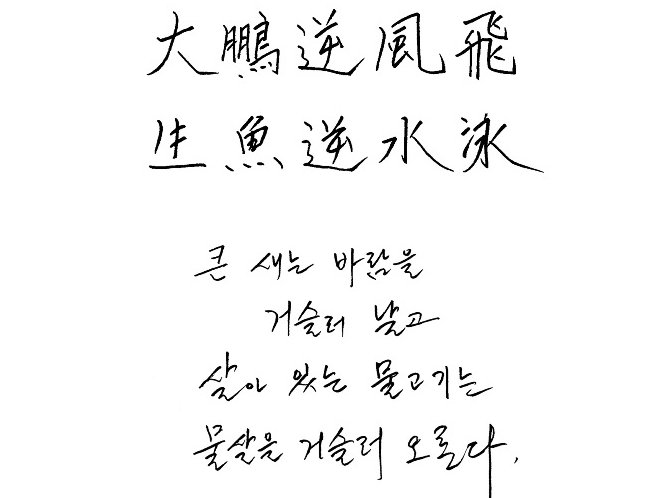 大鵬逆風飛
生魚逆水泳
큰 새는 바람을
거슬러 날고
살아 있는 물고기는
물살을 거슬러 오른다.